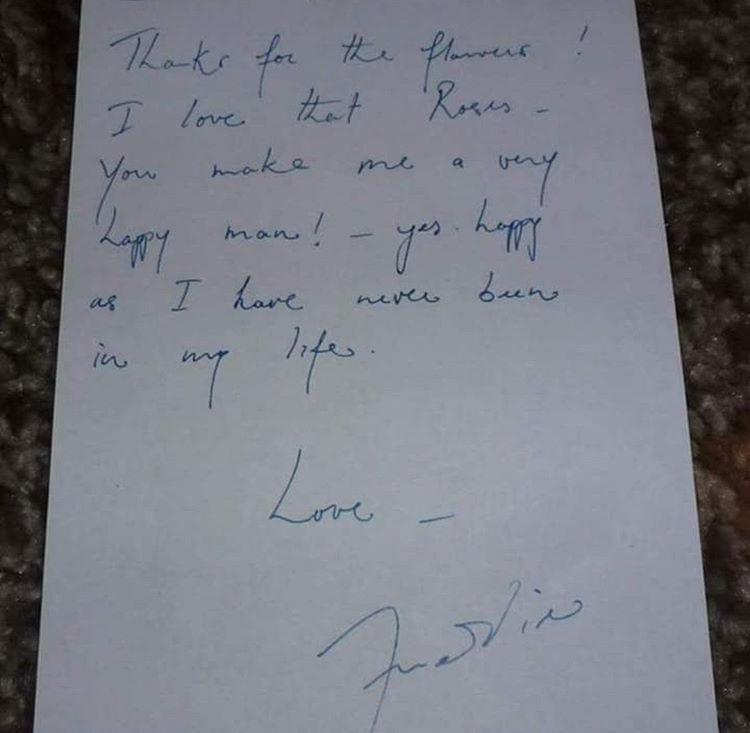 Thanks for the flowers !
I love that Roses -
You make me a very
happy man! - yes. happy
as I have never been
in my life.
Love -